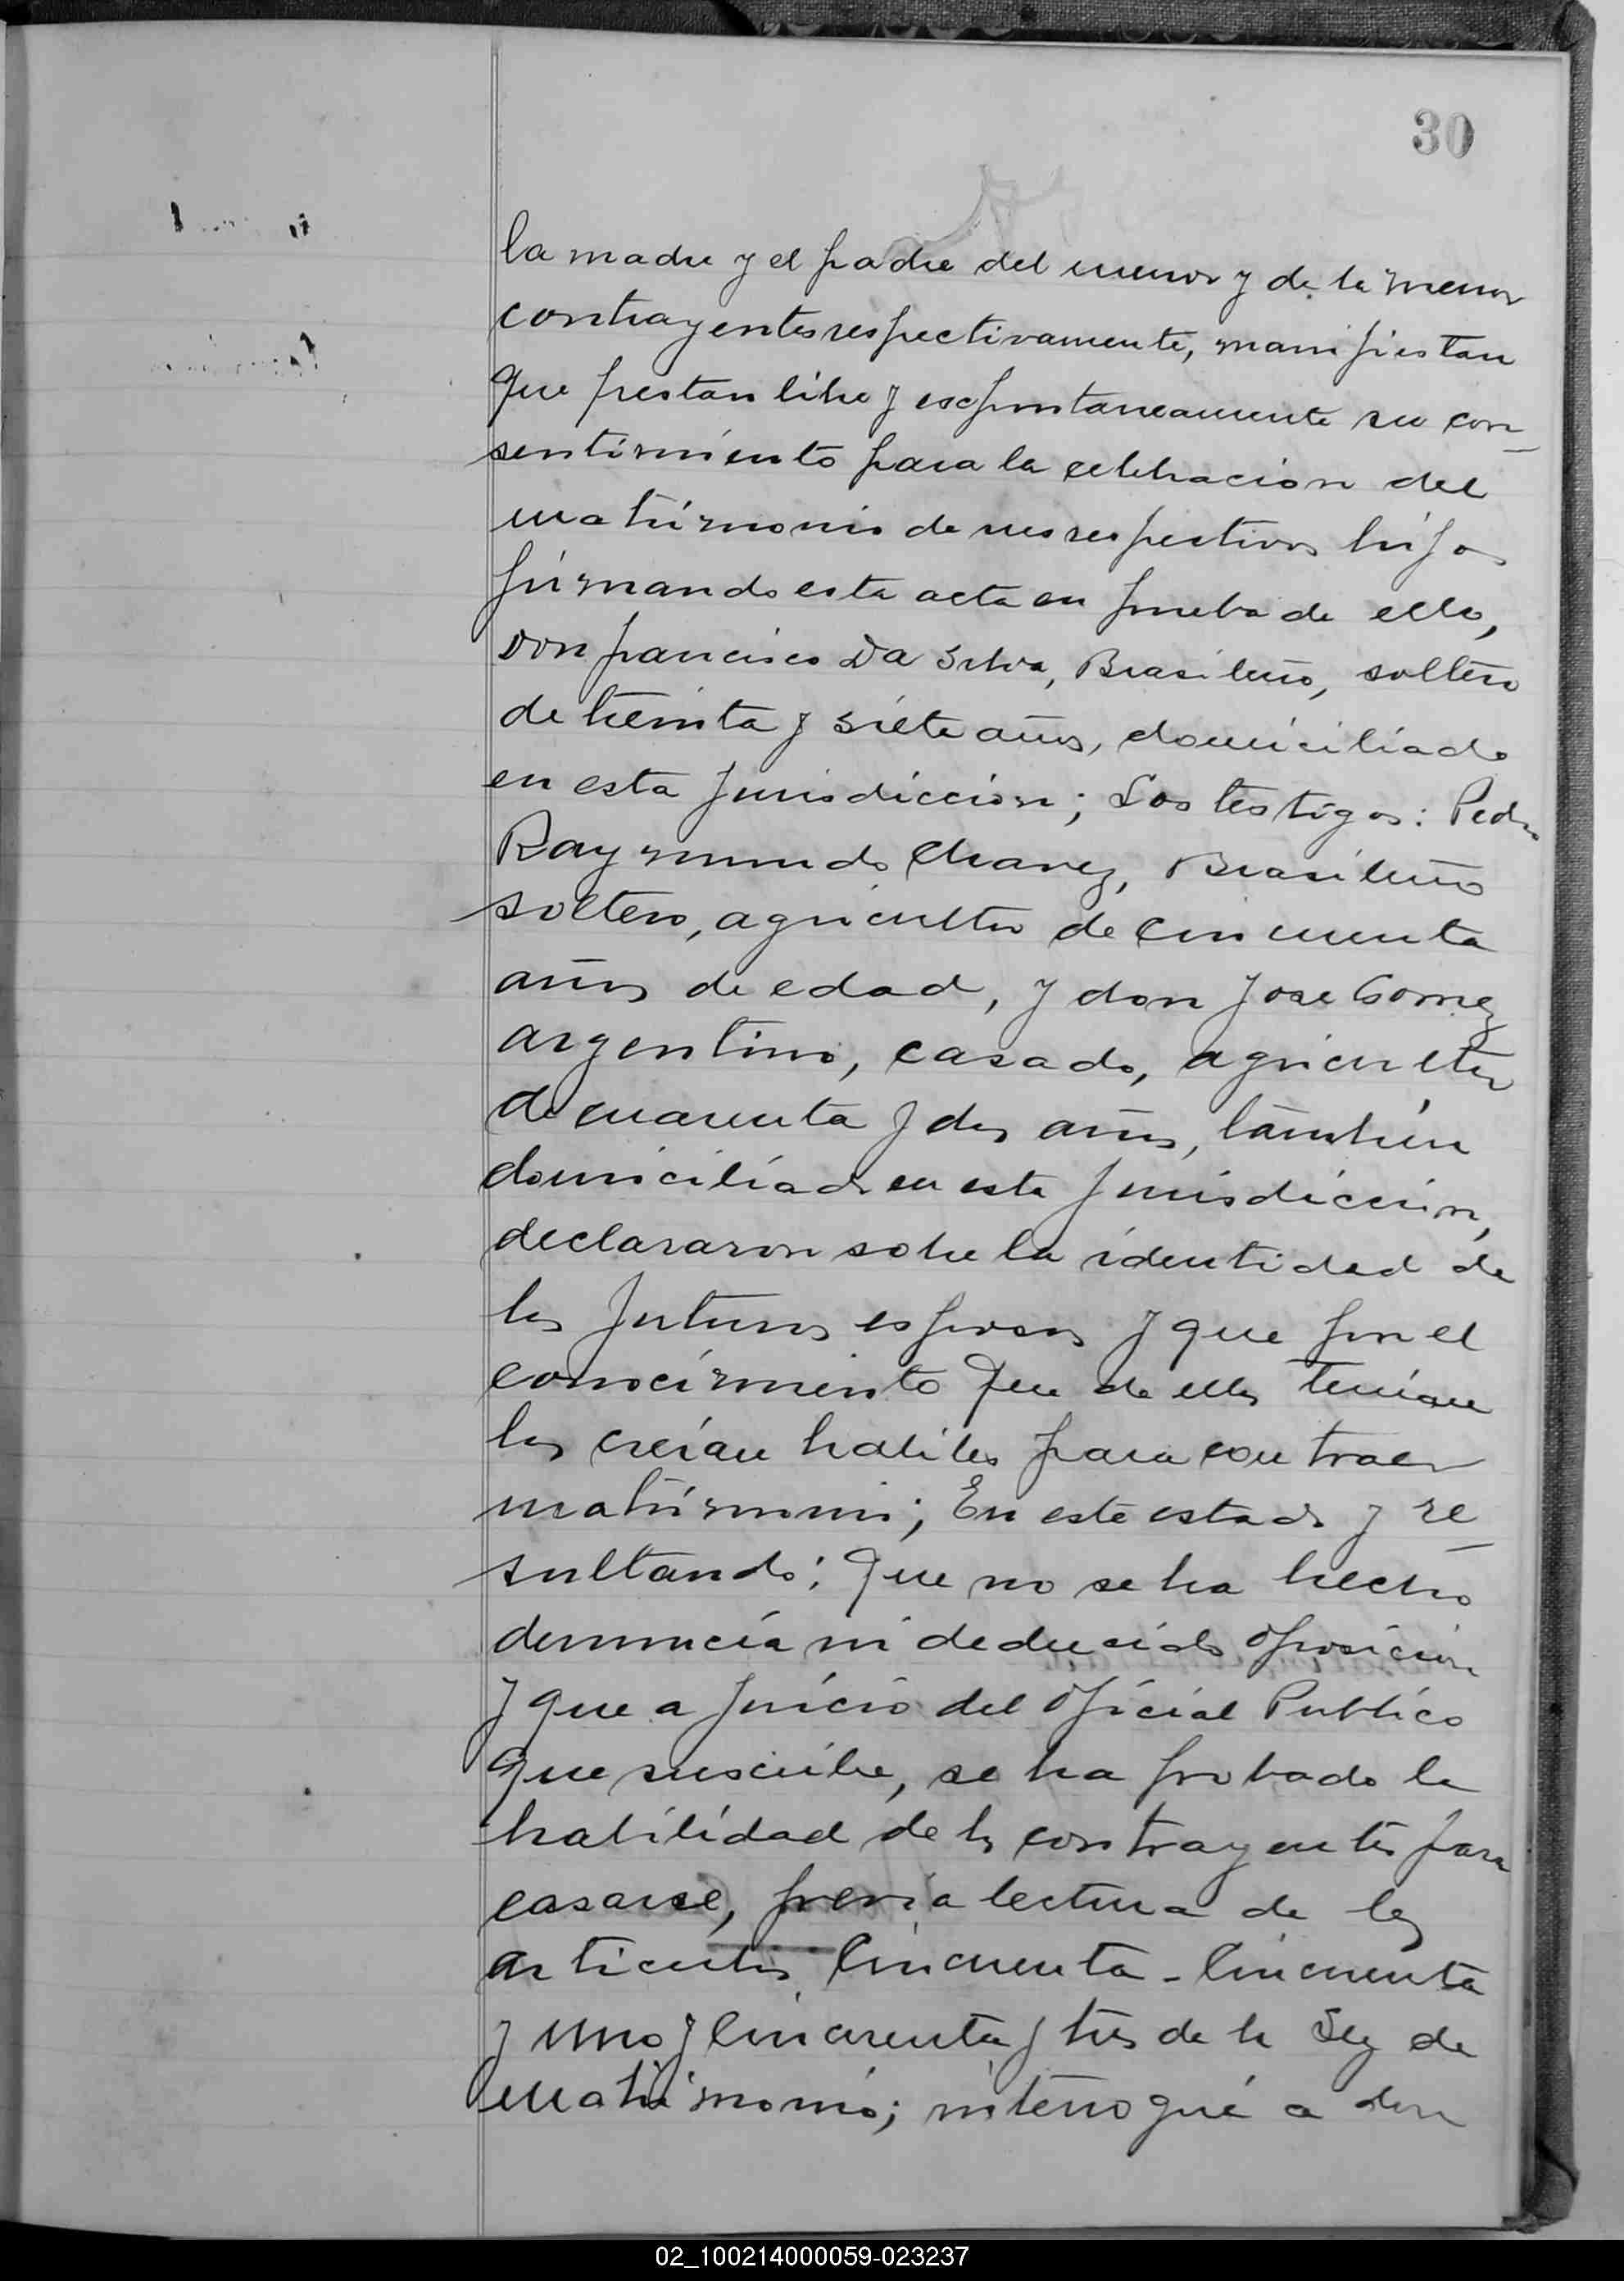 30
la madre y el padre del menor y de la menor
contrayentes respectivamente, manifiestan
que prestan libre y esepontaneamente su con-
sentimiento para la celebracion del
matrimonio de sus respectivos hijos
firmando esta acta en prueba de ello,
Don francisco Da Silva, Brasileño, soltero
de treinta y siete años, domiciliado
en esta jurisdiccion; Los testigos: Pedro
Raymundo Chavez, Brasileño
soltero, agricultor de cincuenta
años de edad, y don Jose Gomez
argentino, casado, agricultor
de cuarenta y dos años, tambien
domiciliado en esta jurisdiccion,
declararon sobre la identidad de
los futuros esposos y que por el
conocimiento que de ellos tenian
los creían habiles para contraer
matrimonio; En este estado y re-
sultando: Que no se ha hecho
denuncia ni deducido oposicion
y que a juicio del Oficial Publico
que suscribe, se ha probado la
habilidad de los contrayentes para
casarse, previa lectura de los
articulos Cincuenta - Cincuenta
y uno y Cincuenta y tres de la Ley de
matrimonio; interrogué a don
02_100214000059-023237